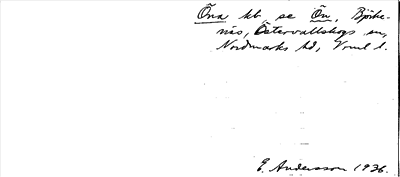 Öna kt se Ön, Björke-
näs, Östervallskogs sn,
Nordmarks hd, Vrml l.
E. Andersson 1936.